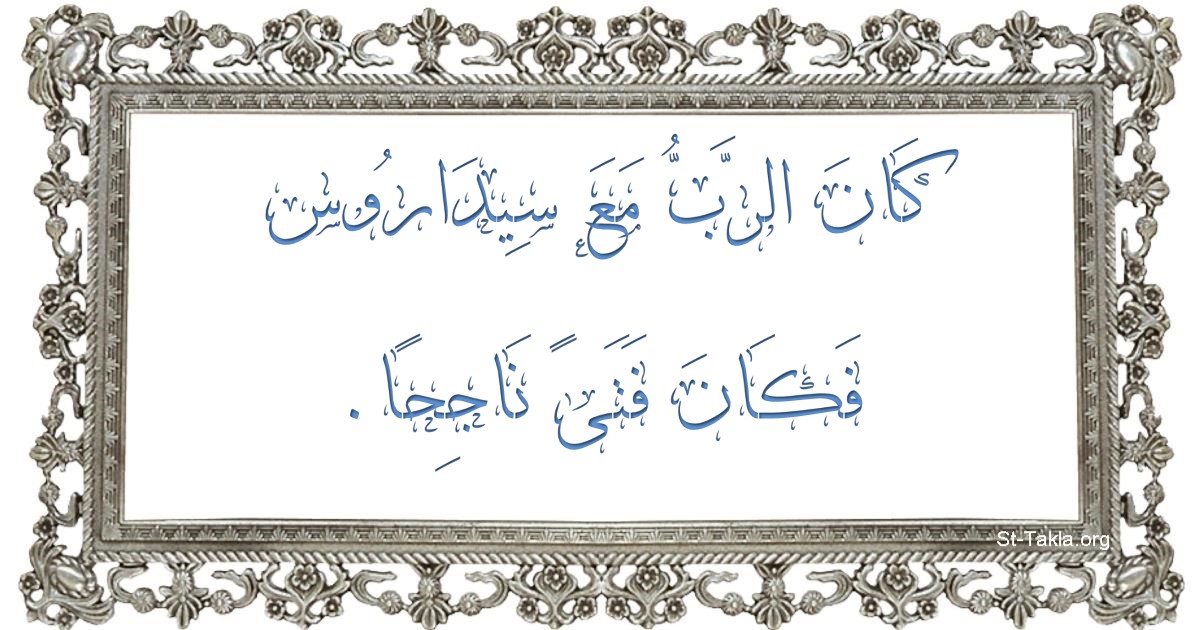 كَانَ الرَّبُّ مَعَ سِيدَارُوس
فَكَانَ فَتَىً نَاجِحًا .
St-Takla.org